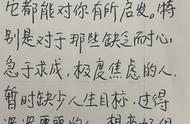 它都能对你有所启发。特
别是对于那些缺乏耐心
急于求成，极度焦虑的人.
暂时缺少人生目标，过得